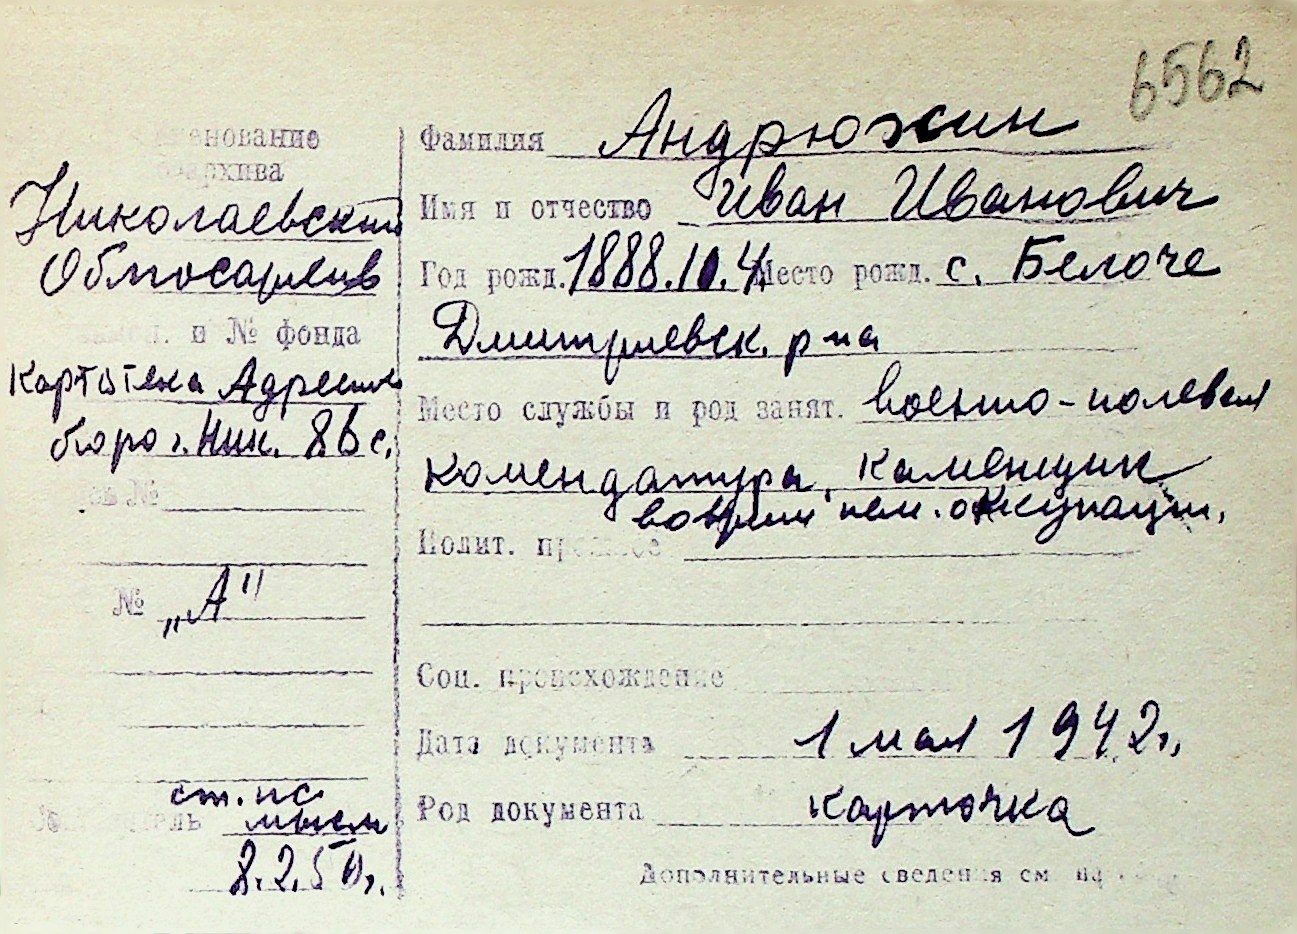 6562
Наименование
госархива
Николаевский
Облгосархив
и № фонда
Картотека Адресного
бюро г. Ник. 86 с.
№
№ „А"
ст. пс.
8.2.50г.
Фамилия Андрюхин
Имя и отчество Иван Иванович
Год рожд. 1888.10.4 Место рожд. с. Белоче
Дмитриевск. р-на
Место службы и род занят. военно-полевая
комендатура, каменщик
во время нем. оккупации.
Полит. прошлое
Соц. происхождение
Дата документа 1 мая 1942г.
Род документа карточка
Дополнительные сведения см. на